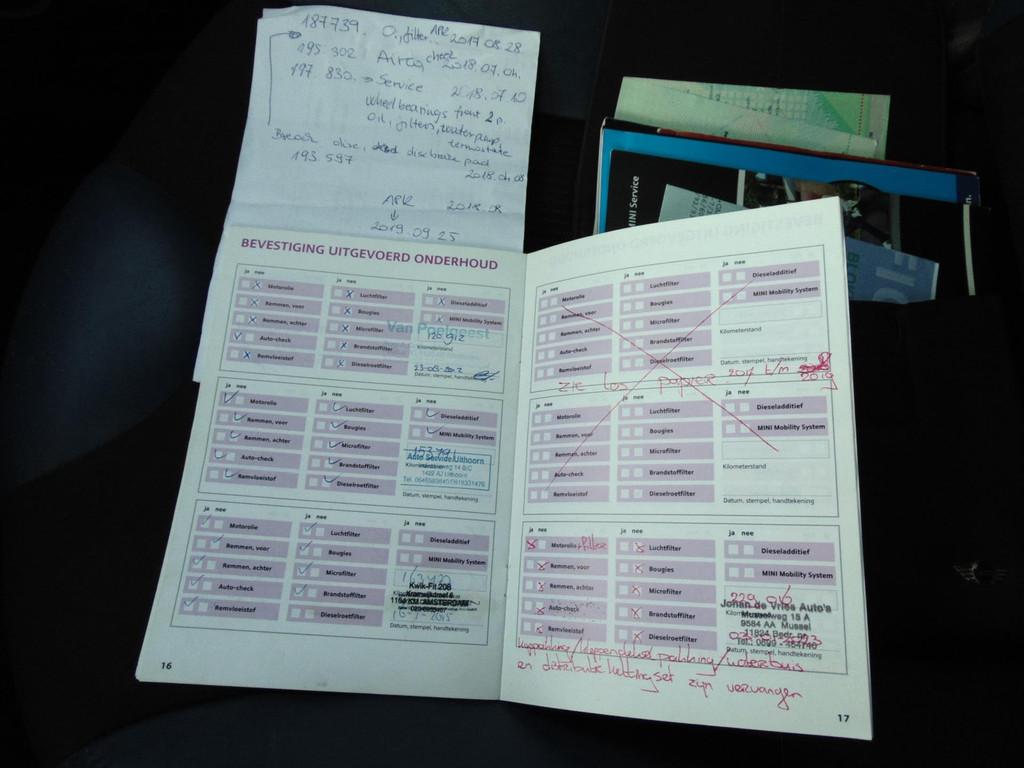 187739. O., filter.. APK 2017 08 28
195 302 Airco check 2018.07.04.
197 830. → Service 2018.07.10
wheel bearings front 2 p.
oil, filters,
termostate
disc, disc brake pad
193.597
2018.04.08
APK 2018.08
↓
2019.09 25
MINI Service
BEVESTIGING UITGEVOERD ONDERHOUD
ja nee ja nee ja nee
Motorolie Luchtfilter Dieseladditief
Remmen, voor Bougies MINI Mobility System
Remmen, achter Microfilter Van Poelgeest
120 912
Auto-check Brandstoffilter Kilometerstand
Remvloeistof Dieselroetfilter
Datum, stempel, handtekening
ja nee ja nee ja nee
Motorolie Luchtfilter Dieseladditief
Remmen, voor Bougies MINI Mobility System
Remmen, achter Microfilter
Auto Service Uithoorn
Auto-check Brandstoffilter
1422 AJ Uithoorn
Remvloeistof Dieselroetfilter
Datum, stempel, handtekening
ja nee ja nee ja nee
Motorolie Luchtfilter Dieseladditief
Remmen, voor Bougies MINI Mobility System
Remmen, achter Microfilter
Kwik-Fit 208
Auto-check Brandstoffilter
AMSTERDAM
Remvloeistof Dieselroetfilter
Datum, stempel, handtekening
16
ja nee ja nee ja nee
Motorolie Luchtfilter Dieseladditief
Remmen, voor Bougies MINI Mobility System
Remmen, achter Microfilter
Auto-check Brandstoffilter Kilometerstand
Remvloeistof Dieselroetfilter Datum, stempel, handtekening
ZIE los papier 2017 t/m 2019
ja nee ja nee ja nee
Motorolie Luchtfilter Dieseladditief
Remmen, voor Bougies MINI Mobility System
Remmen, achter Microfilter
Auto-check Brandstoffilter Kilometerstand
Remvloeistof Dieselroetfilter Datum, stempel, handtekening
ja nee ja nee ja nee
Motorolie + filter Luchtfilter Dieseladditief
Remmen, voor Bougies MINI Mobility System
Remmen, achter Microfilter
229 016
Johan de Vries Auto's
Auto-check Brandstoffilter
Musselweg 15 A
9584 AA Mussel
Remvloeistof Dieselroetfilter
Datum, stempel, handtekening
en distributie kettingset zijn vervangen
17